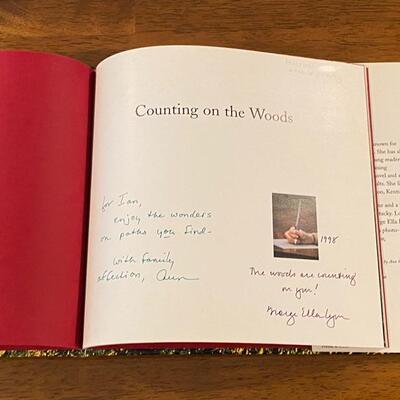 Counting on the Woods
for Ian,
enjoy the wonders
on paths you find-
with family
affection, Ann
1998
The woods are counting
on you!
George Ella Lyon
known for
. She has
young reader
travel and a
Kentu
and a
Lo
George Ella
photo-